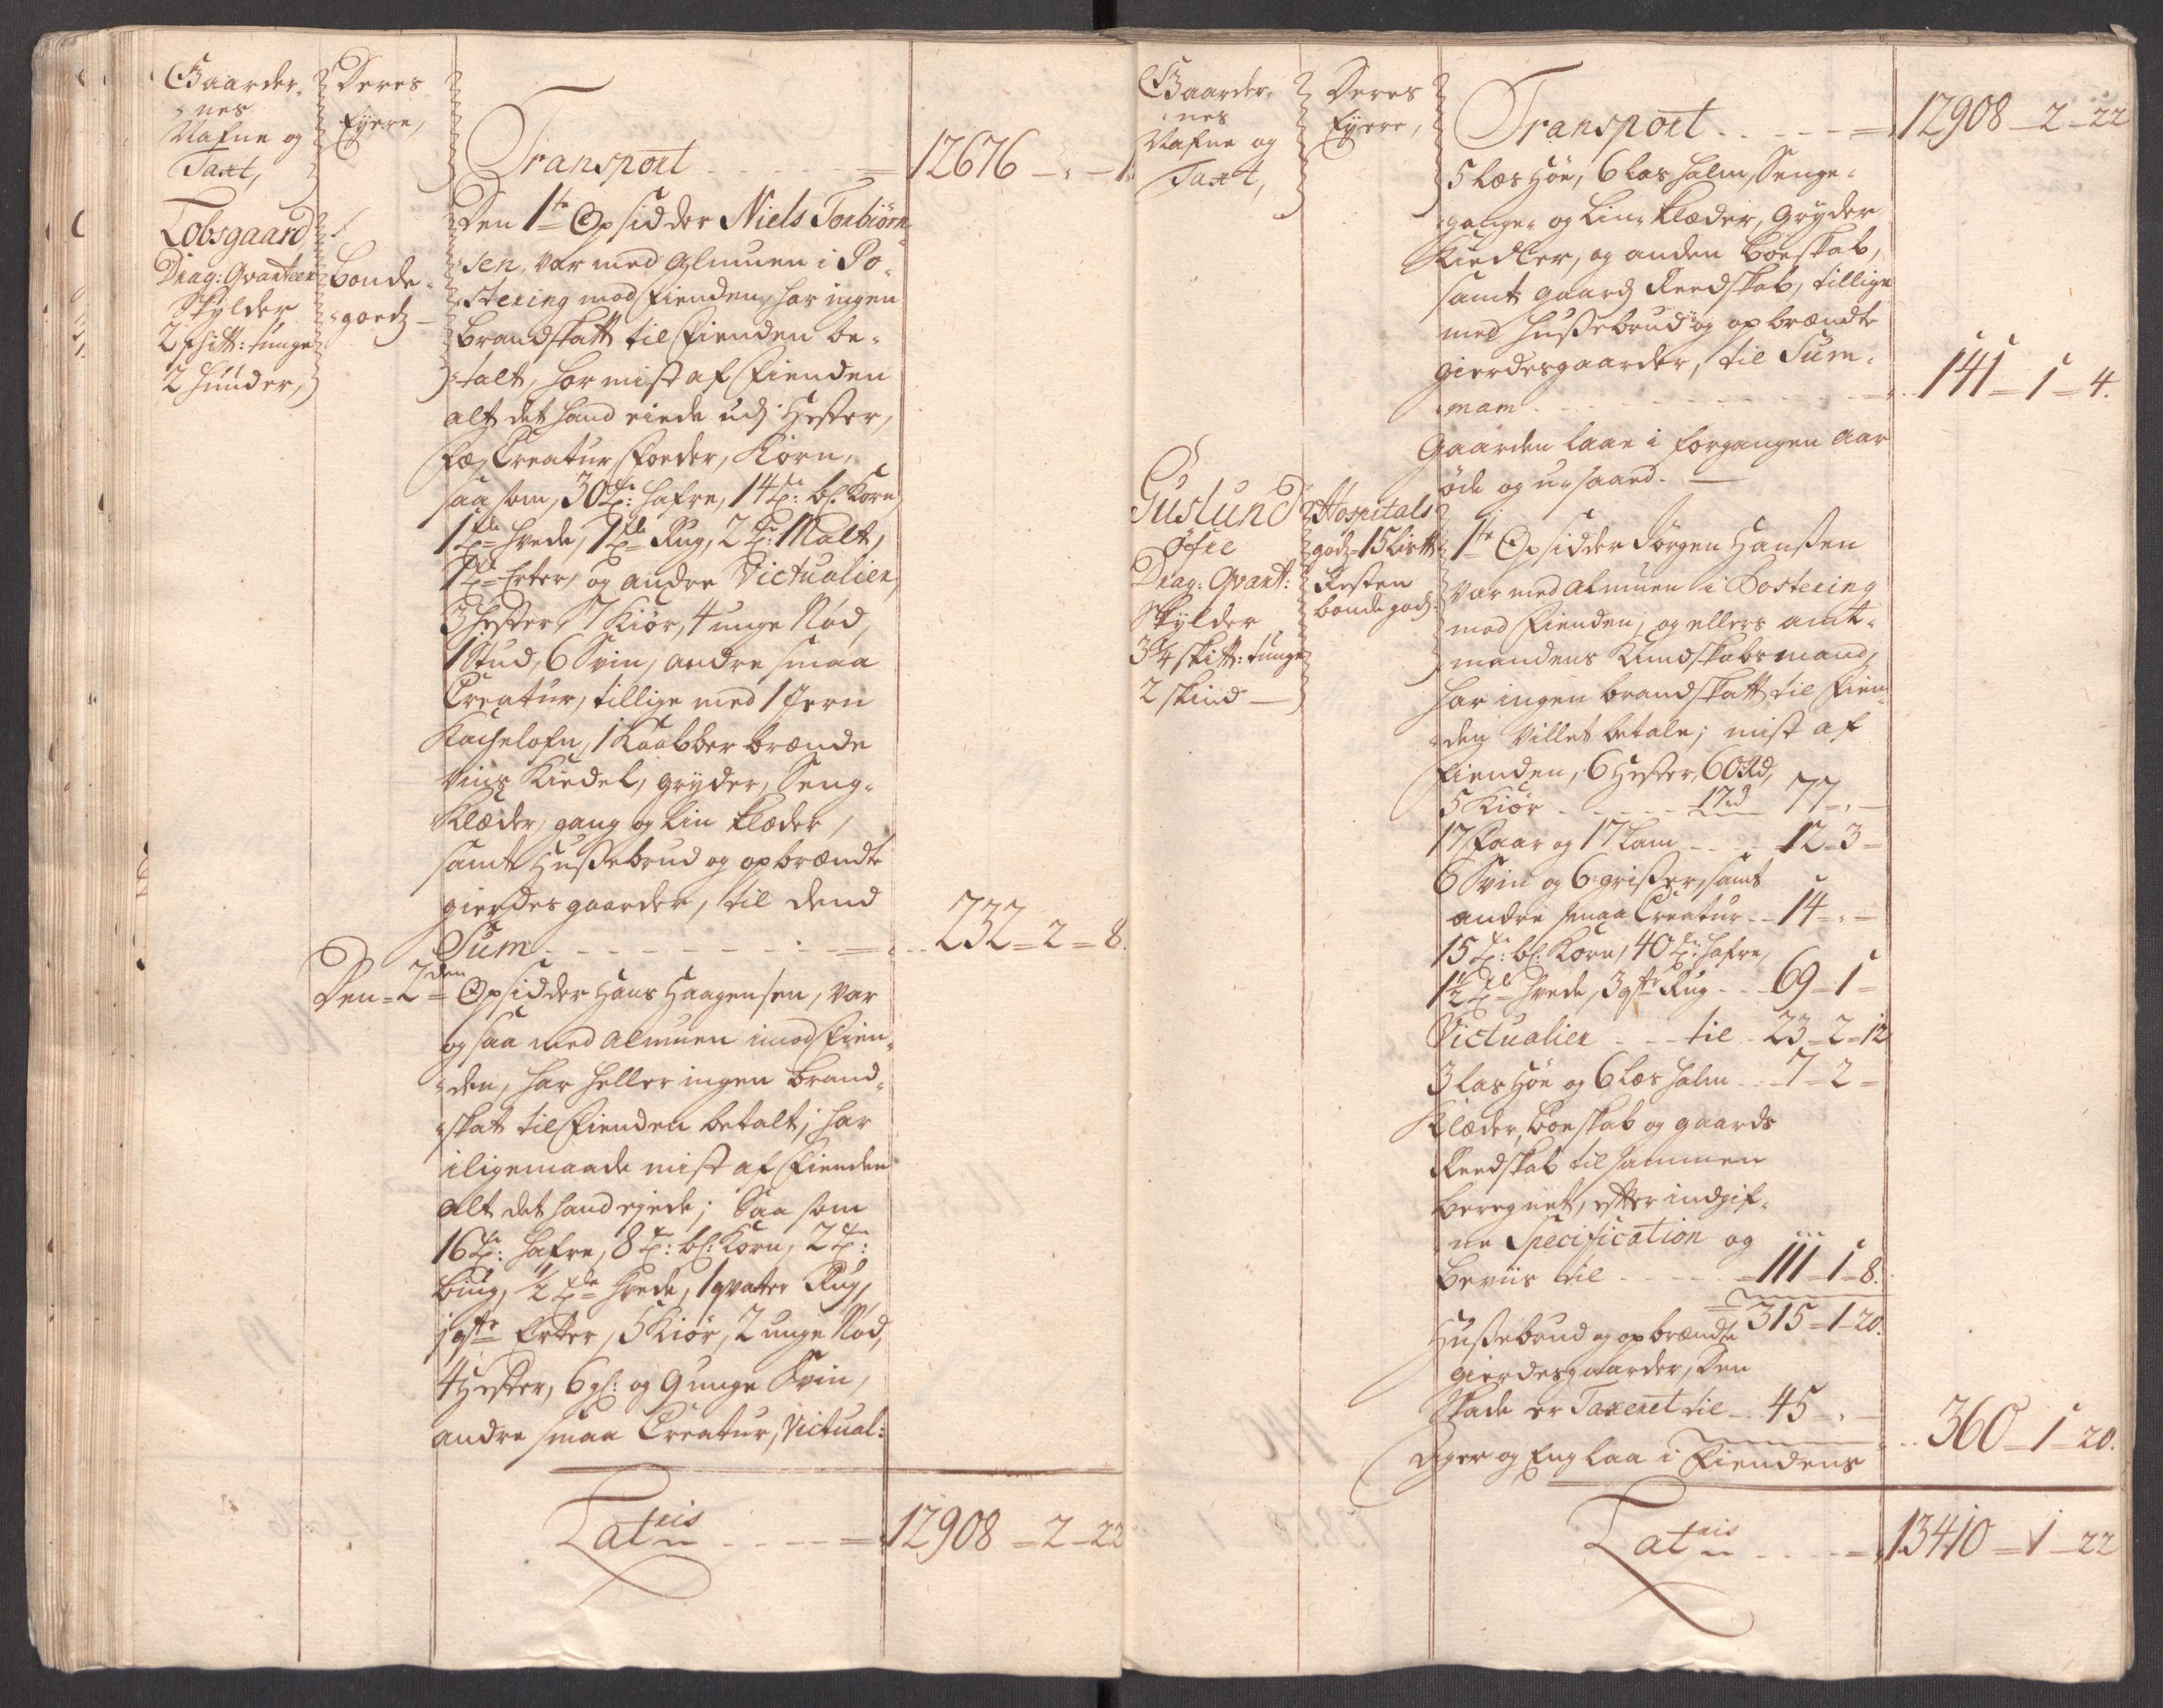 Gaarder-
nes
Nafne og
Taxt,
Deres
Eyere,
Transport - - - - = 12676 - " - 1
Tobsgaard
Drag: Qvarteer
Skylder
2 skitt: tunge
2 huuder,
bonde-
goedz
Den 1te Opsidder Niels Torbiörn-
sen, var med Almuen i Po-
stering mod Fienden, har ingen
brandskatt til Fienden be-
talt, har mist af Fienden
alt det hand eiede udj Hester,
Fæ, Creatur, Foeder, Korn,
saasom, 30 Tr: Hafre, 14 Tr: bl: Korn,
1 Tde hvede, 1 Tde Rug, 2 Tr: Malt,
1 Tde Erter, og andre Victualier,
3 Hester, 7 Kiör, 4 unge Nöd,
1 Stud, 6 Svin, andre smaa
Creatur, tillige med 1 Jern
Kachelofn, 1 Kaabber brænde
viins Kiedel, gryder, Seng-
Klæder, gang og lin klæder,
samt Hussebrud og opbrændte
gierdesgaarder, til dend
Sum - - - - - - = 232 = 2 = 8.
Den 2den Opsidder Hans Haagensen, var
og saa med Almuen imod Fien-
den, har heller ingen brand-
skat til Fienden betalt, har
iligemaade mist af Fienden
alt det hand ejede; Saa som
16 Tr: Hafre, 8 Tr: bl: Korn, 2 Tr:
biug, 1/2 Tde Hvede, 1 qvarter Rug,
1 qtr Erter, 5 Kiör, 2 unge Nöd,
4 Hester, 6 gl: og 9 unge Svin,
andre smaa Creatur, Victual:
Lateris - - - - = 12908 = 2 - 22
Gaarder-
nes
Nafne og
Taxt,
Deres
Eyere,
Transport - - - - = 12908 - 2 - 22
5 Læs Höe, 6 Læs halm, Senge-
gange- og Lin- klæder, Gryder
Kiedler, og anden boeskab,
samt gaards Reedskab, tillige
med Hussebrud og opbrændte
gierdesgaarder, til Sum-
mam - - - - - - = 141 = 1 = 4.
Gaarden laae i forgangen aar
öde og u-saaed. -
Guslund
öfre
Drag: Qvart:
Skylder
3 3/4 skitt: tunge
2 skind -
Hospitals
godz 15 Lis[tt]
Resten
bondegodz:
1te Opsidder Jörgen Hanssen
var med Almuen i Postering
mod Fienden, og ellers amt-
mandens Kundskabsmand,
har ingen brandskatt til Fien-
den villet betale; mist af
Fienden, 6 Hester, 60 Rd,
5 Kiör - - - - 17 rd 77 - " -
17 Faar og 17 Lam - - - 12 - 3 -
6 Svin og 6 grisser, samt
andre smaa Creatur - - 14 - " -
15 Tr: bl: Korn, 40 Tr: Hafre,
1 1/2 Tde hvede, 3 qtr Rug - - 69 - 1 -
Victualier - - - til - 23 - 2 - 12
3 Las Höe og 6 Læs halm - - 7 - 2 -
Klæder, boeskab og gaards
Reedskab til sammen
beregnet, efter indgif-
ne Specification og
beviis til - - - - = 111 = 1 = 8.
= 315 - 1 - 20.
Hussebrud og opbrændte
gierdesgaarder, den
Skade er Taxeret til - 45 - " -
360 - 1 - 20.
Ager og Eng laa i Fiendens
Lateris - - - - = 13410 = 1 - 22